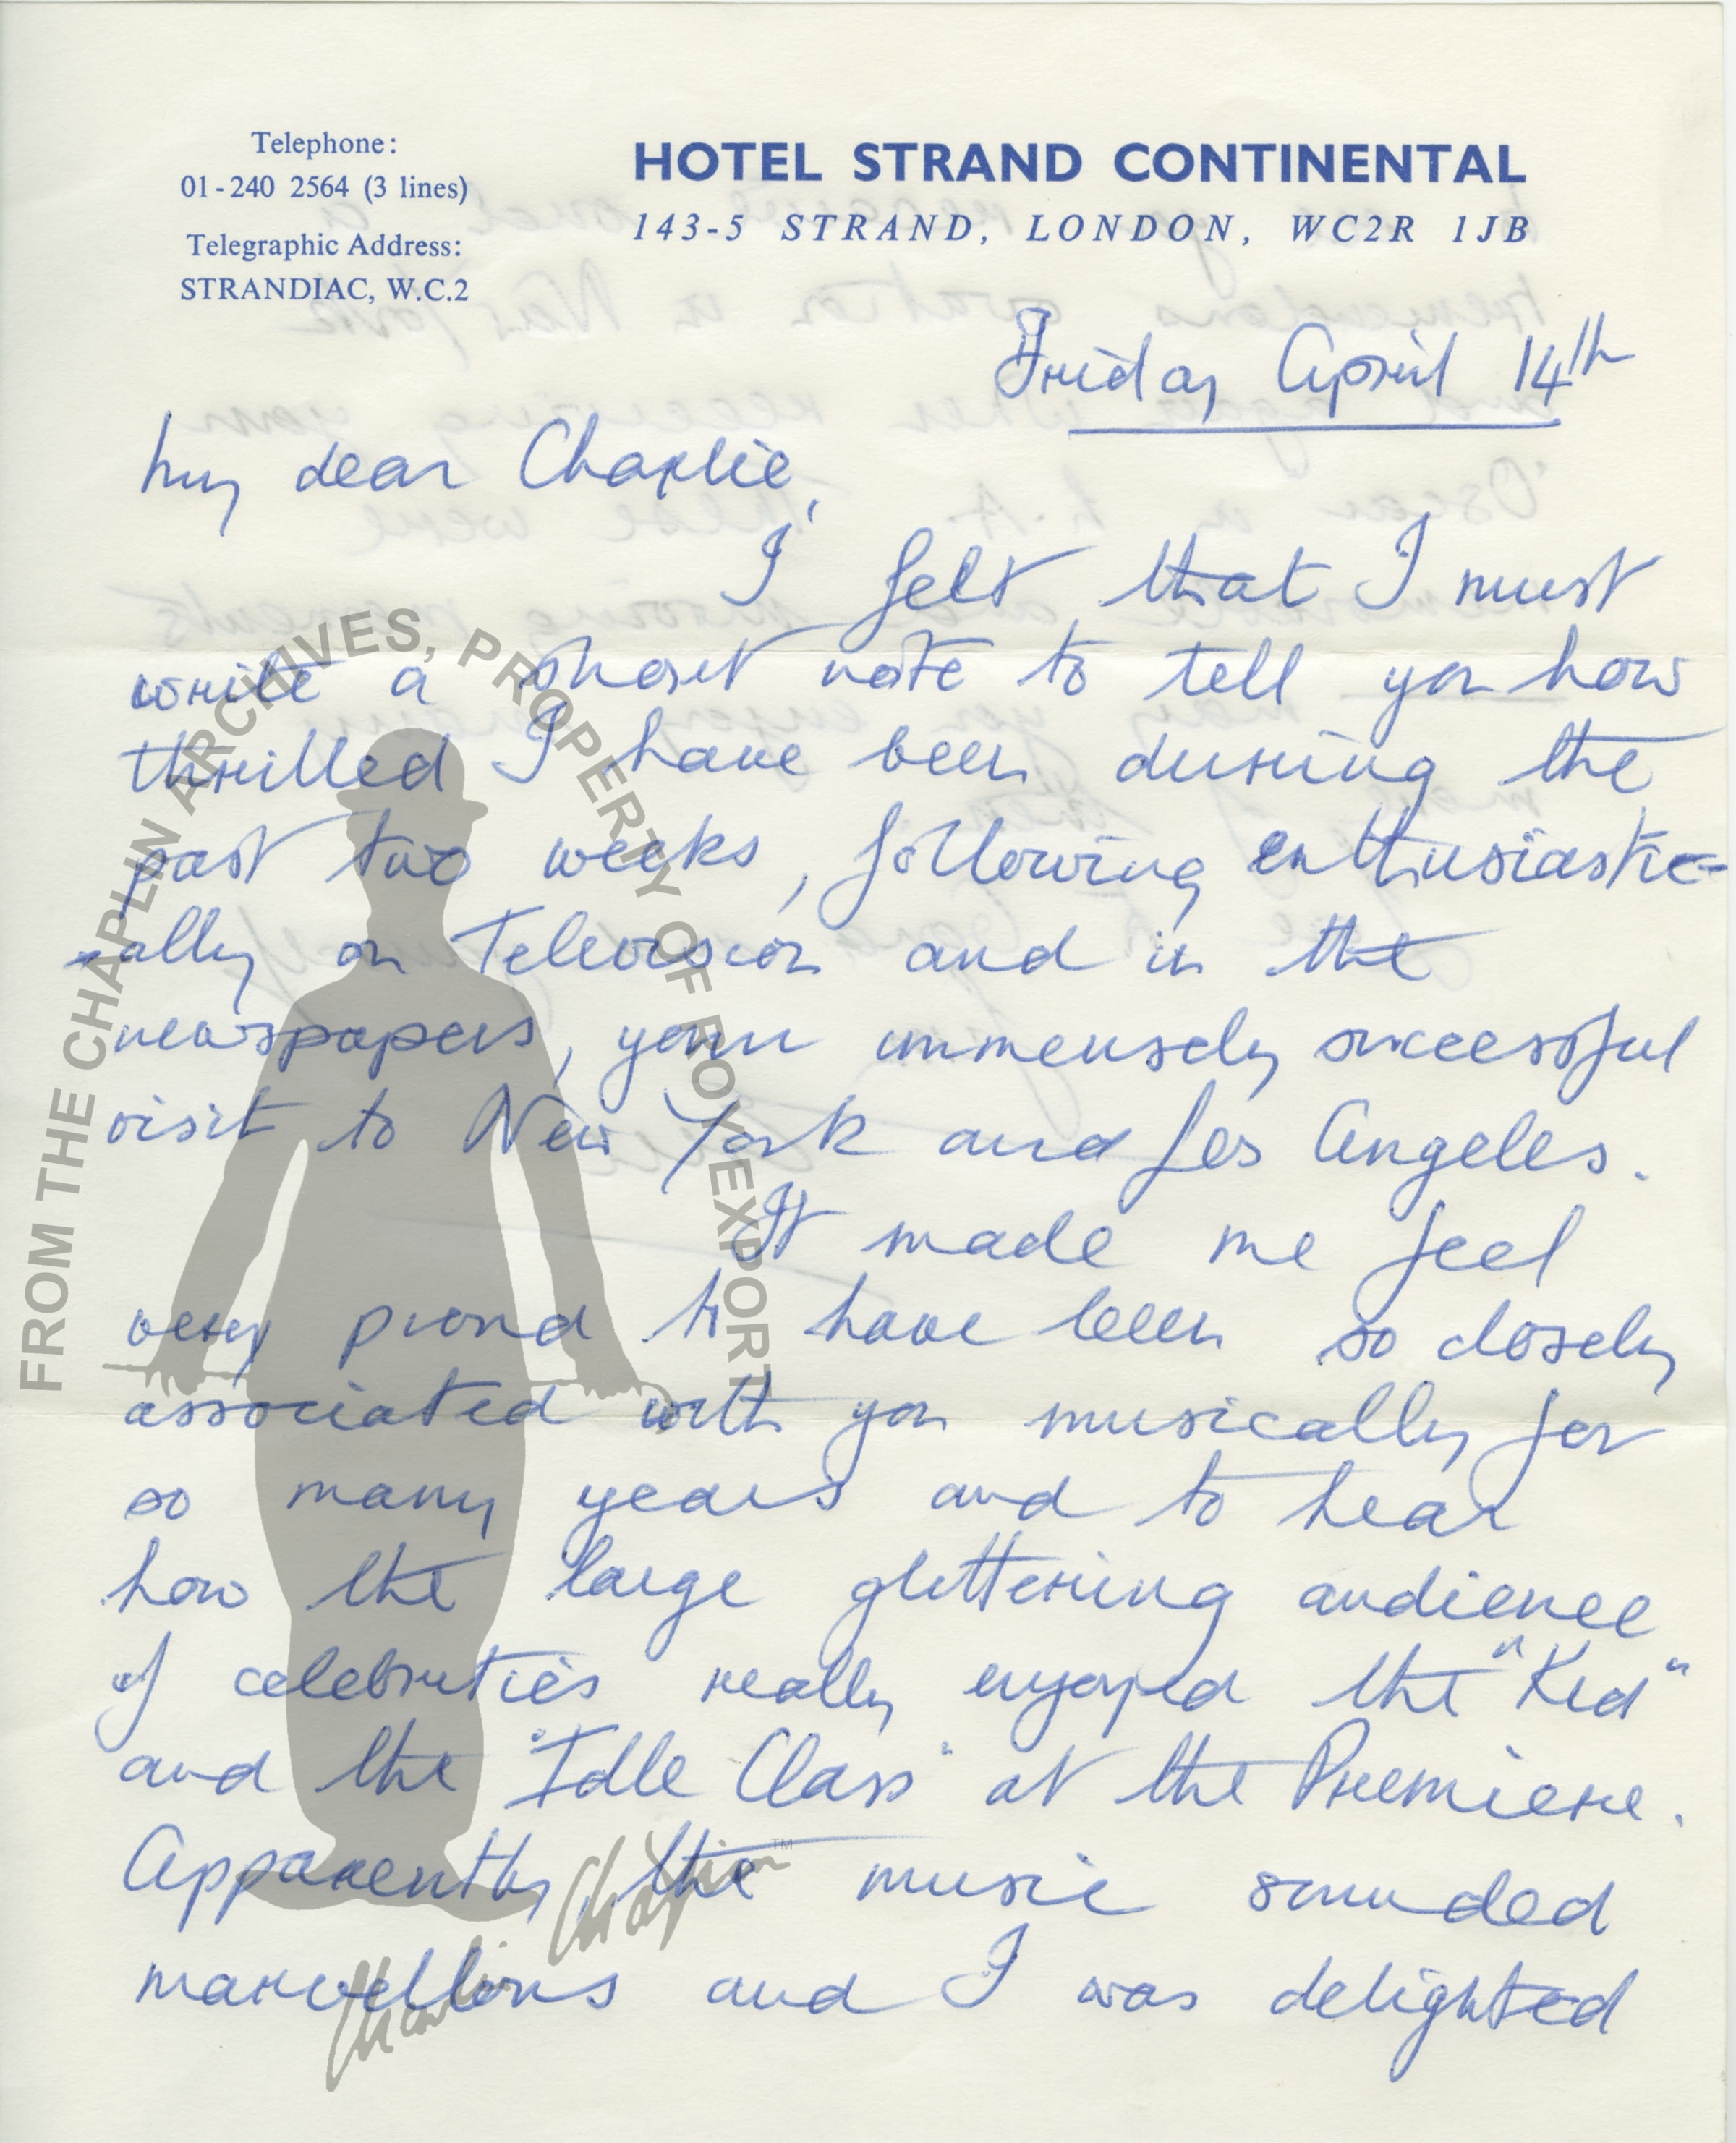 Telephone:
01-240 2564 (3 lines)
Telegraphic Address:
STRANDIAC, W.C.2
HOTEL STRAND CONTINENTAL
143-5 STRAND, LONDON, WC2R 1JB
Friday April 14th
My dear Charlie,
I felt that I must
write a short note to tell you how
thrilled I have been during the
past two weeks, following enthusiastic-
-ally on Television and in the
newspapers, your immensely successful
visit to New York and Los Angeles.
It made me feel
very proud to have been so closely
associated with you musically for
so many years and to hear
how the large glittering audience
of celebrities really enjoyed the "Kid"
and the "Idle Class" at the Premiere.
Apparently, the music sounded
marvellous and I was delighted
FROM THE CHAPLIN ARCHIVES, PROPERTY OF ROY EXPORT
Charlie Chaplin™